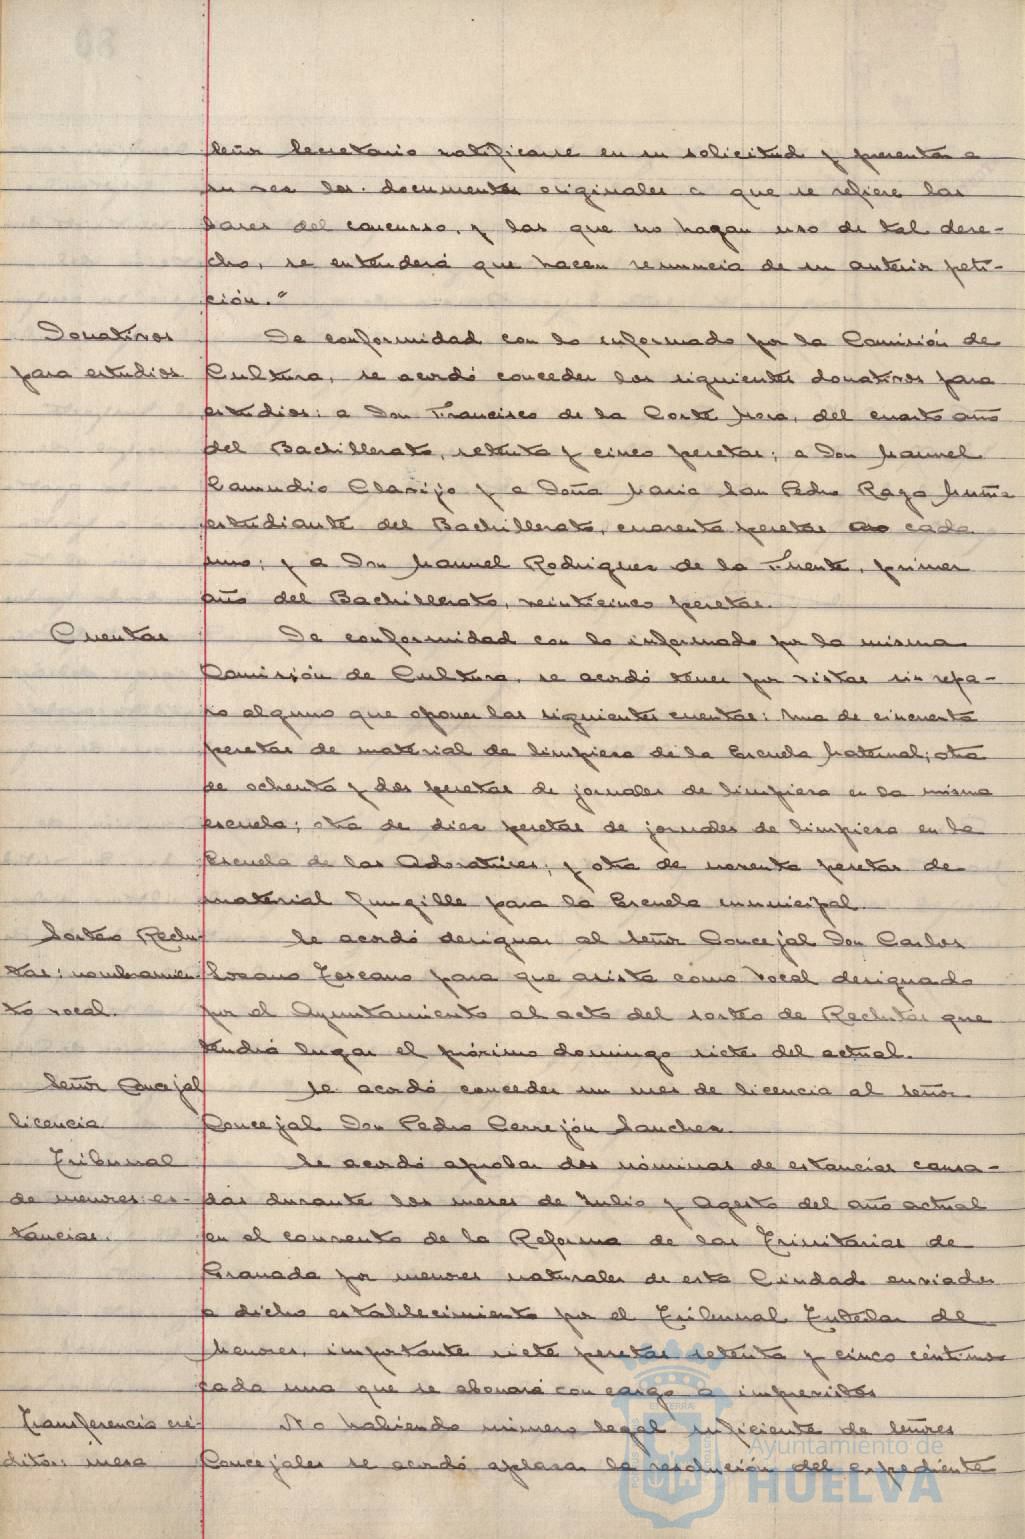 Señor Secretario ratificarse en su solicitud y presentar a
su vez los documentos originales a que se refiere las
bases del concurso, y los que no hagan uso de tal dere-
cho, se entenderá que hacen renuncia de su anterior peti-
ción."
Donativos
para estudios
De conformidad con lo informado por la Comisión de
Cultura, se acordó conceder los siguientes donativos para
estudios: a Don Francisco de la Corte Mora, del cuarto año
del Bachillerato, setenta y cinco pesetas; a Don Manuel
Zamudio Clavijo y a Doña María San Pedro Raga Muñiz
estudiante del Bachillerato, cuarenta pesetas cada
uno; y a Don Manuel Rodriguez de la Fuente, primer
año del Bachillerato, veinticinco pesetas.
Cuentas
De conformidad con lo informado por la misma
Comisión de Cultura, se acordó tener por vistas sin repa-
ro alguno que oponer las siguientes cuentas: Una de cincuenta
pesetas de material de limpieza de la Escuela Maternal; otra
de ochenta y dos pesetas de jornales de limpieza en la misma
escuela; otra de diez pesetas de jornales de limpieza en la
Escuela de las Adoratrices; y otra de noventa pesetas de
material fungille para la Escuela municipal.
Sorteo Reclu-
tas: nombramien-
to vocal.
Se acordó designar al Señor Concejal Don Carlos
Lozano Toscano para que asista como Vocal designado
por el Ayuntamiento al acto del sorteo de Reclutas que
tendrá lugar el próximo domingo siete del actual.
Señor Concejal
licencia
Se acordó conceder un mes de licencia al Señor
Concejal Don Pedro Cerrejón Sanchez.
Tribunal
de menores: es-
tancias.
Se acordó aprobar dos nóminas de estancias causa-
das durante los meses de Julio y Agosto del año actual
en el convento de la Reforma de las Trinitarias de
Granada por menores naturales de esta Ciudad enviados
a dicho establecimiento por el Tribunal Tutelar de
Menores, importante siete pesetas setenta y cinco céntimos
cada una que se abonará con cargo a imprevistos
Transferencia cré-
ditos: mesa
No habiendo número legal suficiente de Señores
Concejales se acordó aplazar la resolución del expediente
Ayuntamiento de
HUELVA